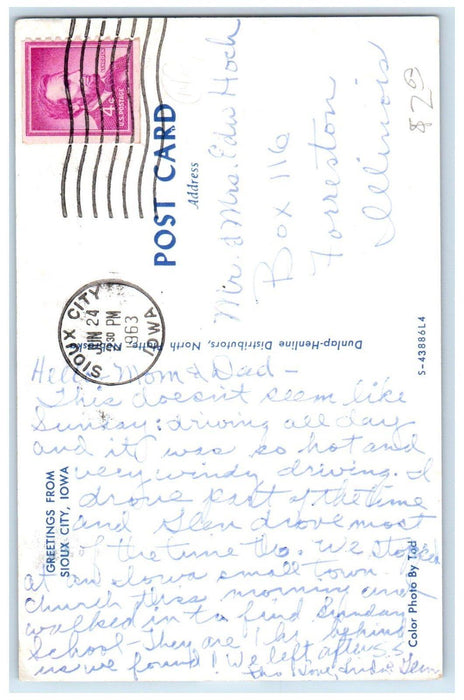 4¢
U.S. POSTAGE
SIOUX CITY
JUN 24
2:30 PM
1963
IOWA
POST CARD
Address
Mr. & Mrs. Edw Hoch
Box 116
Forreston
Illinois
8 29
Dunlop-Henline Distributors, North Platte, Nebraska
S-43886L4
GREETINGS FROM
SIOUX CITY, IOWA
Color Photo By Tod
Hello Mom & Dad –
This doesn't seem like
Sunday: driving all day
and it was so hot and
very windy driving. I
drove part of the time
and Glen drove most
of the time tho. We stopped
at an Iowa small town
church this morning and
walked in to find Sunday
School – They are 1 hr behind
us we found! We left after S.S.
Love, Linda Glenn